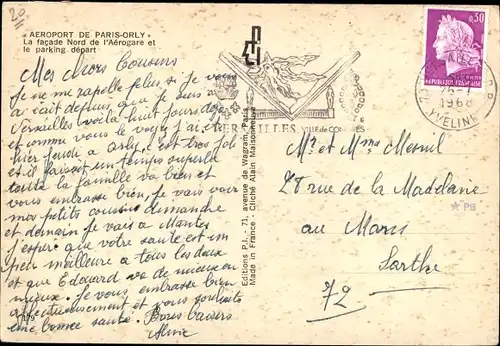 20/11
« AEROPORT DE PARIS-ORLY »
La façade Nord de l'Aérogare et
le parking départ
Mes chers Cousins
Je ne me rappelle plus si je vous
ai écrit depuis que je suis à
Versailles voilà huit jours déjà
et comme vous le voyez j'ai été
hier jeudi à Orly, c'est très joli
et il faisait un temps superbe
toute la famille va bien et
vous embrasse bien, je vais voir
mes petits cousins dimanche
et demain je vais à Mantes
J'espère que votre santé est un
peu meilleure à tous les deux
et que Edouard va de mieux en
mieux. Je vous embrasse bien
affectueusement et vous souhaite
une bonne santé. Bons baisers
Aline
179
Editions P.I. - 71, avenue de Wagram, Paris
Made in France - Cliché Alain Maisonneuve
VERSAILLES VILLE DE CONGRES
0,30
REPUBLIQUE FRANCAISE
1968
YVELINES
Mr et Mme Mesnil
28 rue de la Maddane
au Mans
Sarthe
72
★ PB